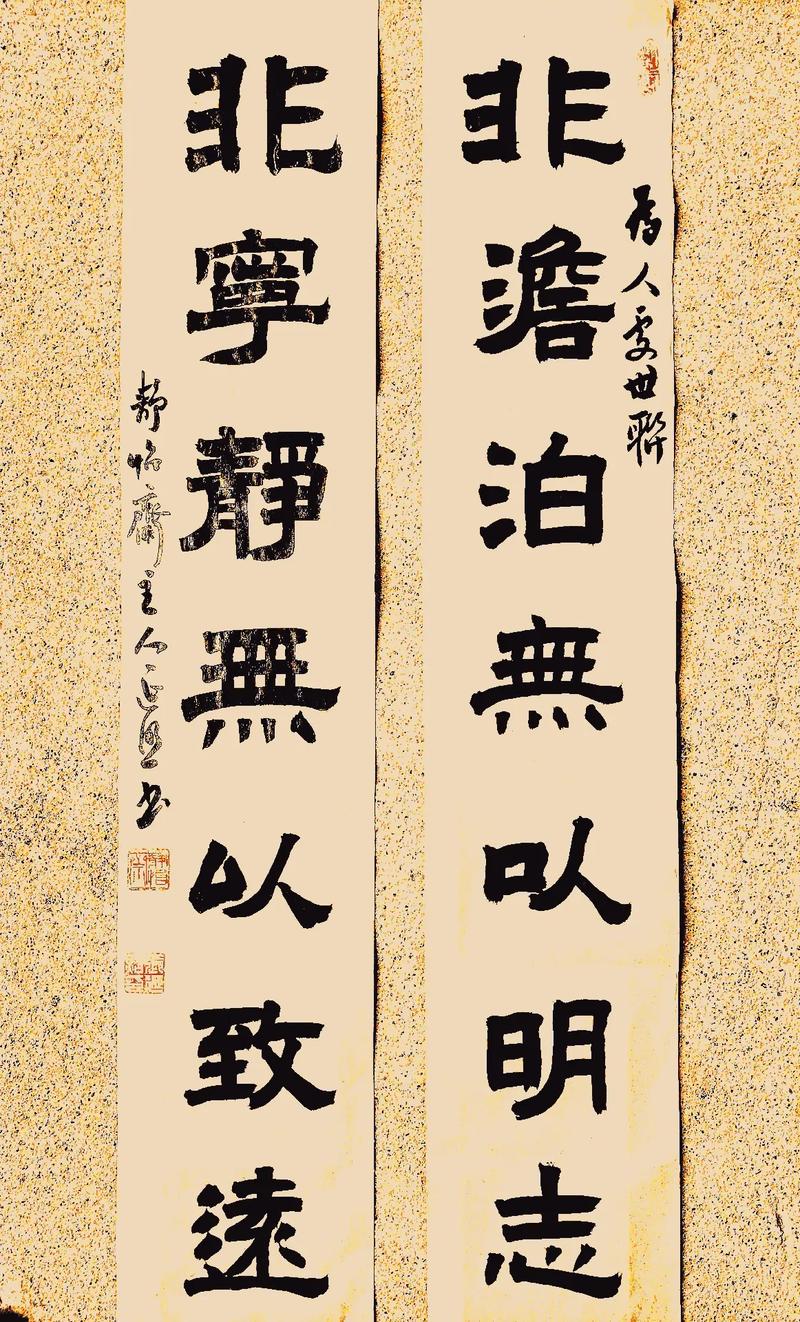 為人處世聯
非澹泊無以明志
非寧靜無以致遠
靜怡齋主人
書